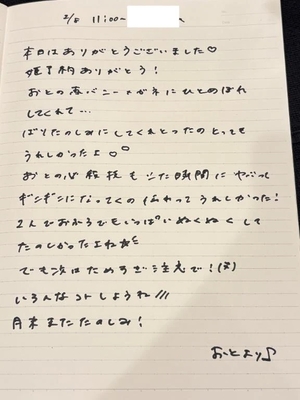 2/8 11:00〜 へ
本日はありがとうございました♡
姫予約ありがとう!
おとの春バニー×ガネにひとめぼれ
してくれて…
ばりたのしみにしてくれとったのとっても
うれしかったよ
おとの心 も 時間に やばっ
ギンギンになってくの伝わってうれしかった!
2人でおふろでもいっぱいぬくぬくして
たのしかったよね
でも次はためすぎ注意で!(笑)
いろんなコトしようね///
月末またたのしみ!
おとより♪